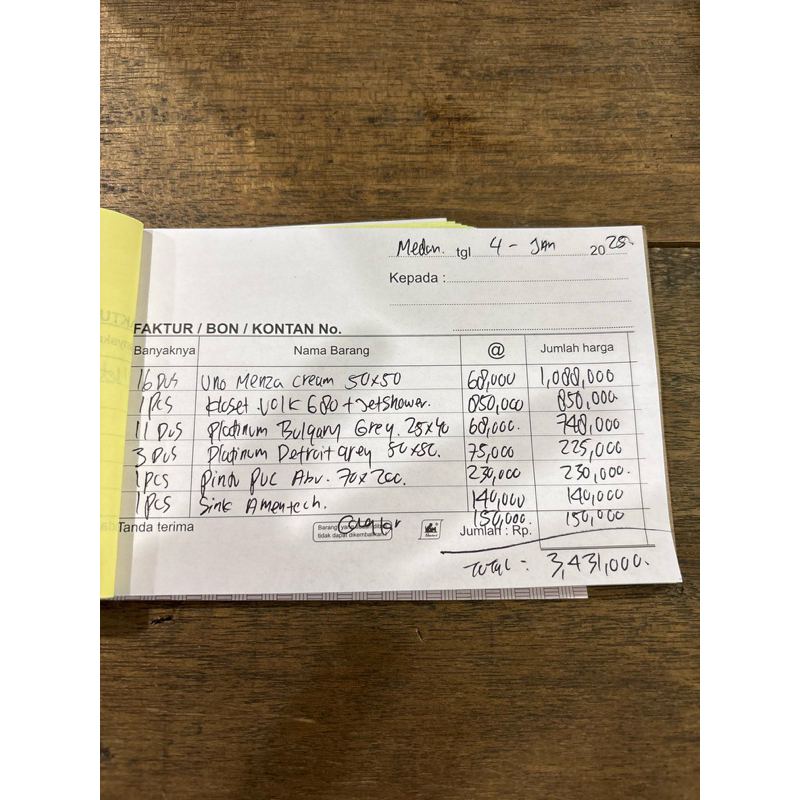 Medan. tgl 4 - Jan 2025
Kepada :
FAKTUR / BON / KONTAN No.
Banyaknya Nama Barang @ Jumlah harga
16 Dus Uno Menza cream 50x50 68,000 1,088,000
1 pcs kloset VOLK 680 + Jetshower. 850,000 850,000
11 Dus Platinum Bulgary Grey. 25x40 68,000. 748,000
3 Dus Platinum Detroit grey 50x50. 75,000 225,000
1 pcs Pintu PVC Abu. 70x200. 230,000 230,000.
1 pcs Sink Amentech. 140,000 140,000
150,000. 150,000
Tanda terima Barang yang tidak dapat dikembalikan Jumlah : Rp.
Total = 3,431,000.